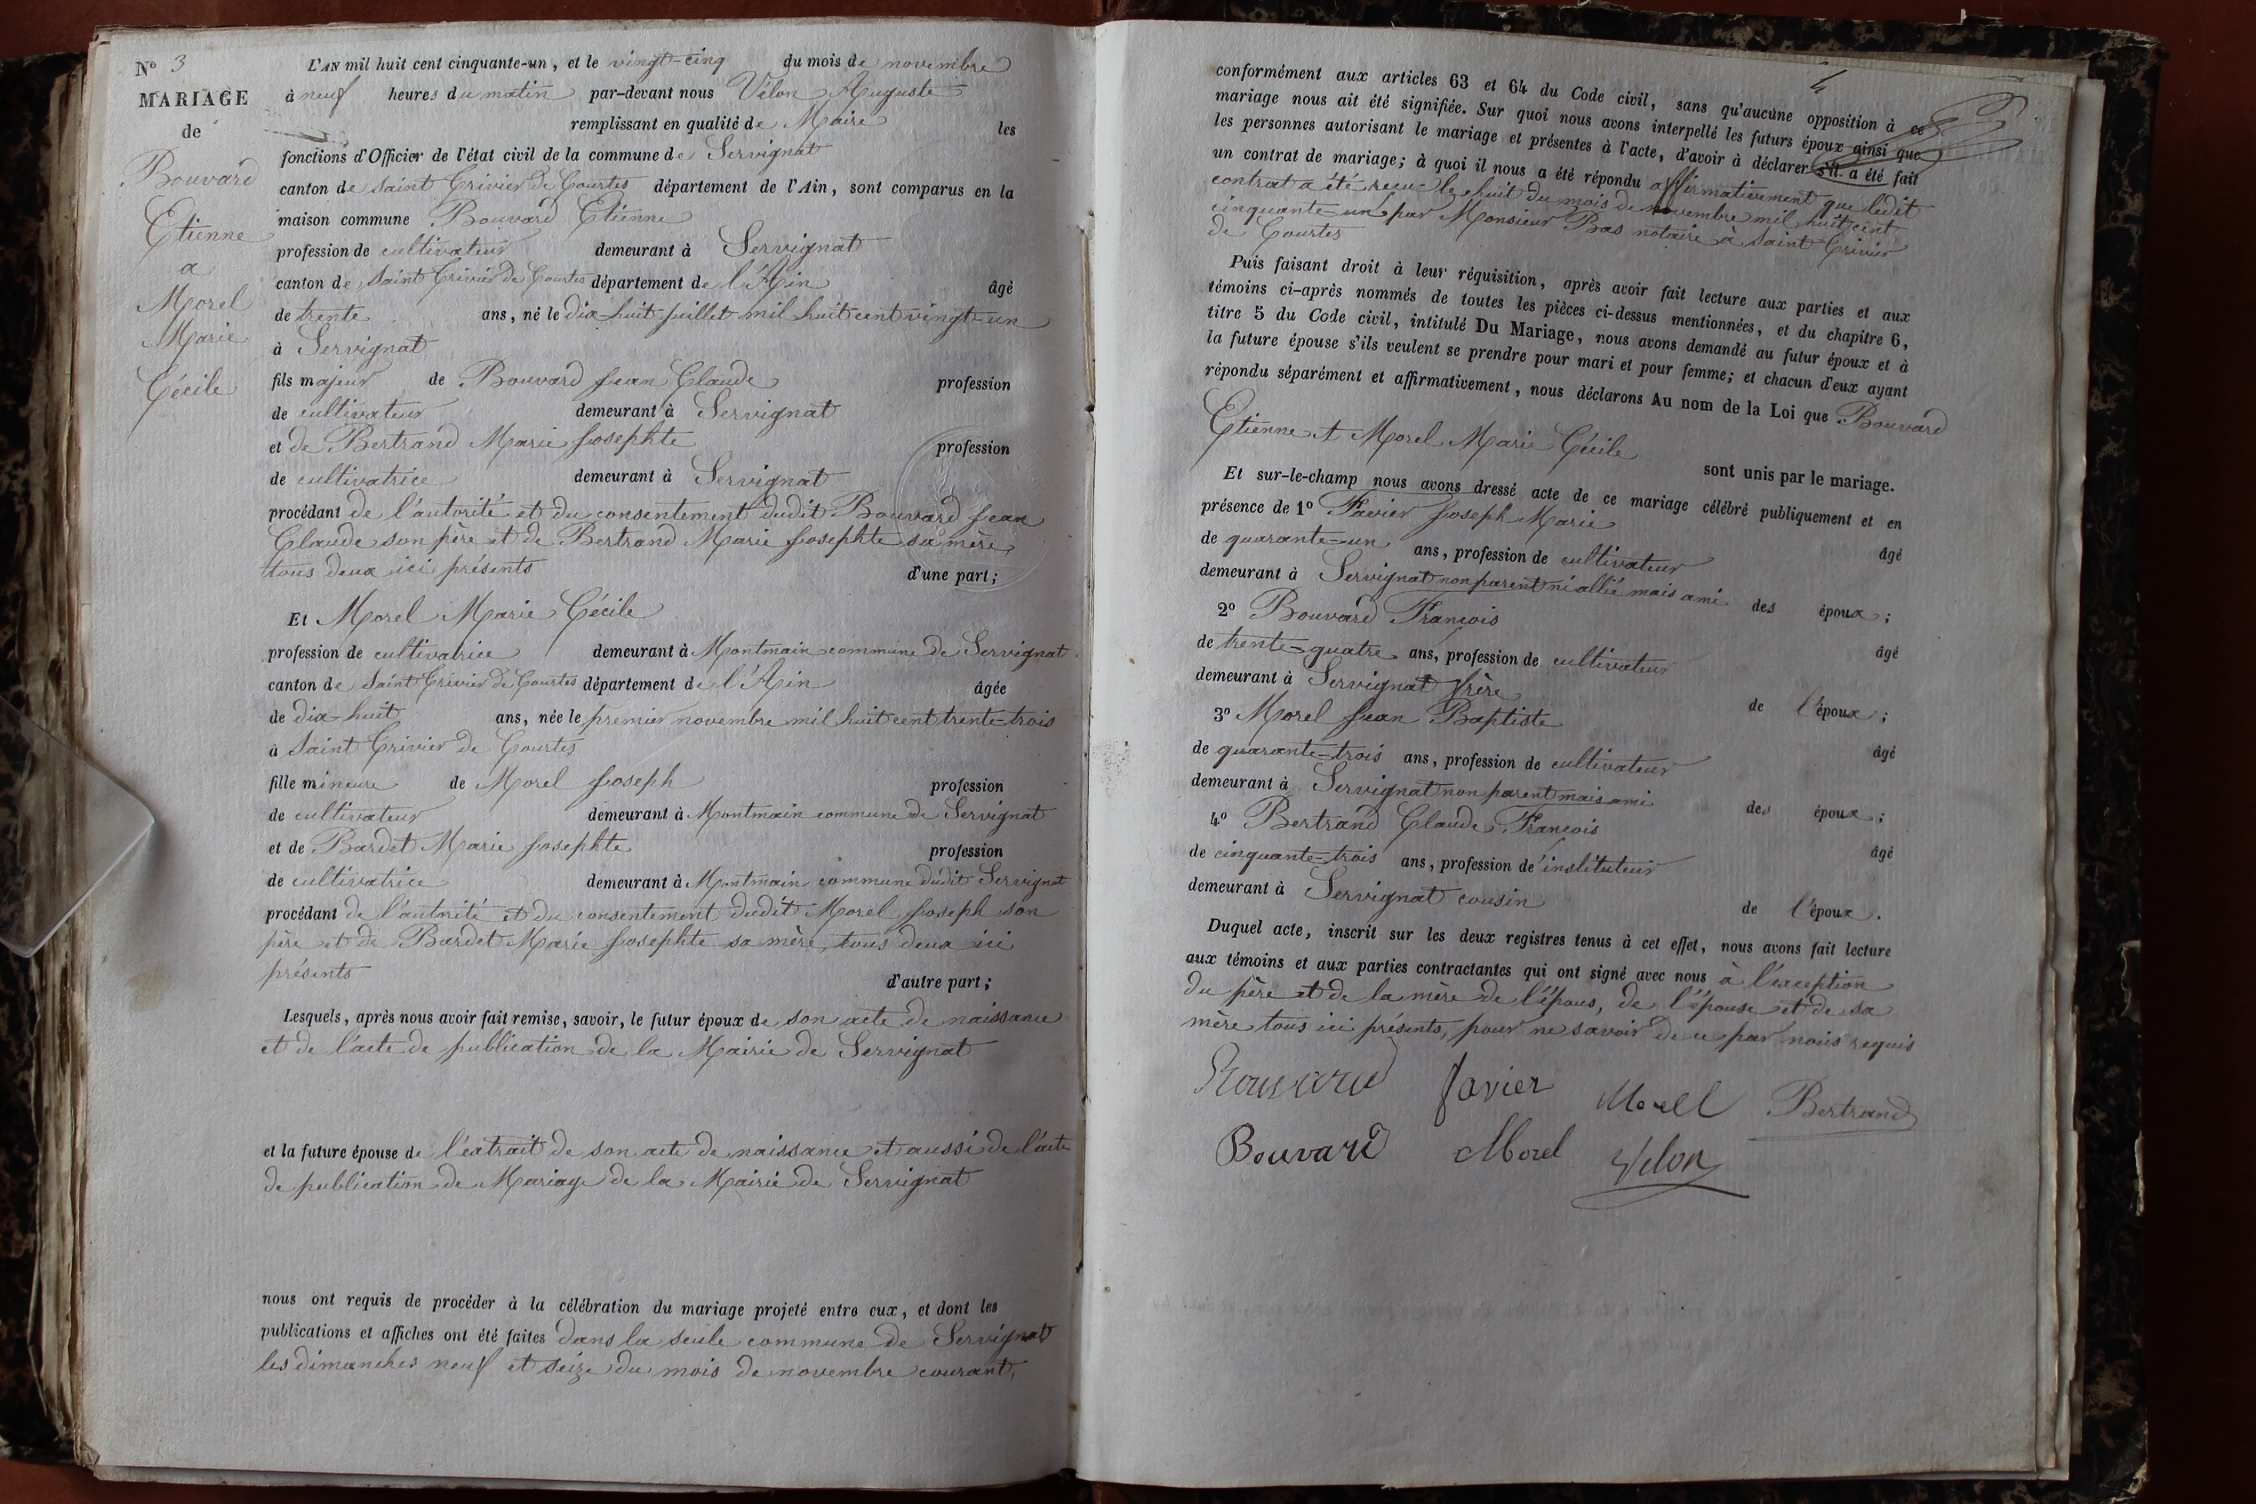 N° 3
MARIAGE
de
Bouvard
Etienne
a
Morel
Marie
Cécile
L'AN mil huit cent cinquante-un, et le vingt-cinq du mois de novembre
à neuf heures du matin par-devant nous Vélon Auguste
remplissant en qualité de Maire les
fonctions d'Officier de l'état civil de la commune de Servignat
canton de Saint Trivier de Courtes département de l'Ain, sont comparus en la
maison commune Bouvard Etienne
profession de cultivateur demeurant à Servignat
canton de Saint Trivier de Courtes département de l'Ain âgé
de trente ans, né le dix-huit juillet mil huit cent vingt-un
à Servignat
fils majeur de Bouvard Jean Claude profession
de cultivateur demeurant à Servignat
et de Bertrand Marie Josephte profession
de cultivatrice demeurant à Servignat
procédant de l'autorité et du consentement dudit Bouvard Jean
Claude son père et de Bertrand Marie Josephte sa mère
tous deux ici présents d'une part;
Et Morel Marie Cécile
profession de cultivatrice demeurant à Montmain commune de Servignat
canton de Saint Trivier de Courtes département de l'Ain âgée
de dix-huit ans, née le premier novembre mil huit cent trente-trois
à Saint Trivier de Courtes
fille mineure de Morel Joseph profession
de cultivateur demeurant à Montmain commune de Servignat
et de Bardet Marie Josephte profession
de cultivatrice demeurant à Montmain commune dudit Servignat
procédant de l'autorité et du consentement dudit Morel Joseph son
père et de Bardet Marie Josephte sa mère, tous deux ici
présents d'autre part;
Lesquels, après nous avoir fait remise, savoir, le futur époux de son acte de naissance
et de l'acte de publication de la Mairie de Servignat
et la future épouse de l'extrait de son acte de naissance et aussi de l'acte
de publication de Mariage de la Mairie de Servignat
nous ont requis de procéder à la célébration du mariage projeté entre eux, et dont les
publications et affiches ont été faites dans la seule commune de Servignat
les dimanches neuf et seize du mois de novembre courant,
4
conformément aux articles 63 et 64 du Code civil, sans qu'aucune opposition à ce
mariage nous ait été signifiée. Sur quoi nous avons interpellé les futurs époux ainsi que
les personnes autorisant le mariage et présentes à l'acte, d'avoir à déclarer s'il a été fait
un contrat de mariage; à quoi il nous a été répondu affirmativement que ledit
contrat a été reçu le huit du mois de novembre mil huit cent
cinquante-un par Monsieur Bas notaire à Saint Trivier
de Courtes
Puis faisant droit à leur réquisition, après avoir fait lecture aux parties et aux
témoins ci-après nommés de toutes les pièces ci-dessus mentionnées, et du chapitre 6,
titre 5 du Code civil, intitulé Du Mariage, nous avons demandé au futur époux et à
la future épouse s'ils veulent se prendre pour mari et pour femme; et chacun d'eux ayant
répondu séparément et affirmativement, nous déclarons Au nom de la Loi que Bouvard
Etienne et Morel Marie Cécile
sont unis par le mariage.
Et sur-le-champ nous avons dressé acte de ce mariage célébré publiquement et en
présence de 1° Favier Joseph Marie âgé
de quarante-un ans, profession de cultivateur
demeurant à Servignat non parent ni allié mais ami des époux;
2° Bouvard François âgé
de trente-quatre ans, profession de cultivateur
demeurant à Servignat frère de l'époux;
3° Morel Jean Baptiste âgé
de quarante-trois ans, profession de cultivateur
demeurant à Servignat non parent mais ami des époux;
4° Bertrand Claude François âgé
de cinquante-trois ans, profession de instituteur
demeurant à Servignat cousin de l'époux.
Duquel acte, inscrit sur les deux registres tenus à cet effet, nous avons fait lecture
aux témoins et aux parties contractantes qui ont signé avec nous à l'exception
du père et de la mère de l'époux, de l'épouse et de sa
mère tous ici présents, pour ne savoir de ce par nous requis
Bouvard Favier Morel Bertrand
Bouvard Morel Vélon